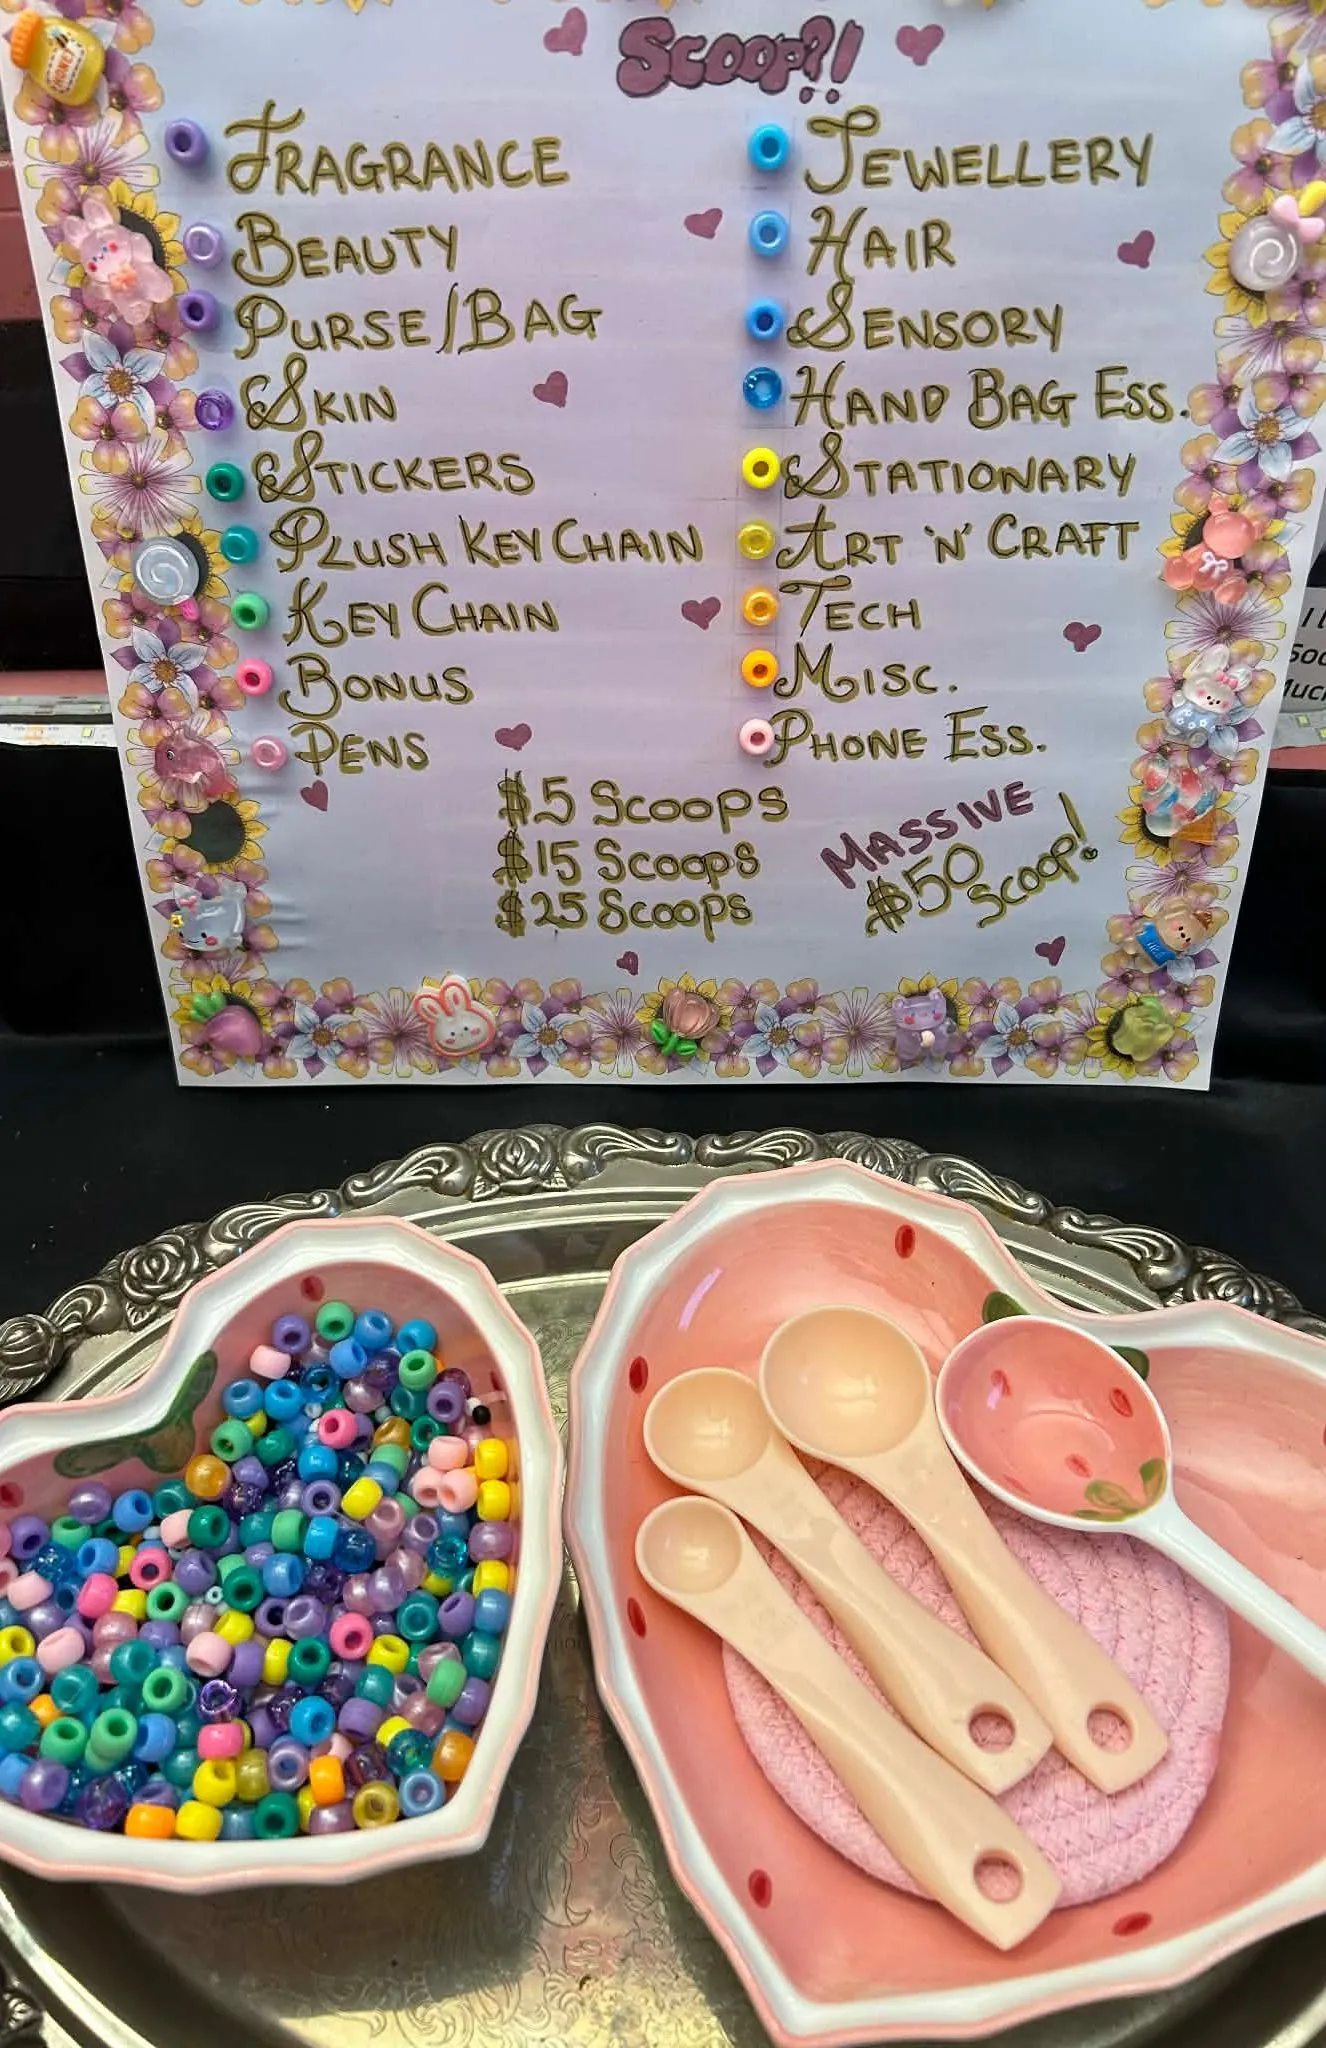 Scoop?!
HONEY
FRAGRANCE
BEAUTY
PURSE/BAG
SKIN
STICKERS
PLUSH KEY CHAIN
KEY CHAIN
BONUS
PENS
JEWELLERY
HAIR
SENSORY
HAND BAG ESS.
STATIONARY
ART 'N' CRAFT
TECH
MISC.
PHONE ESS.
$5 Scoops
$15 Scoops
$25 Scoops
MASSIVE
$50
Scoop!